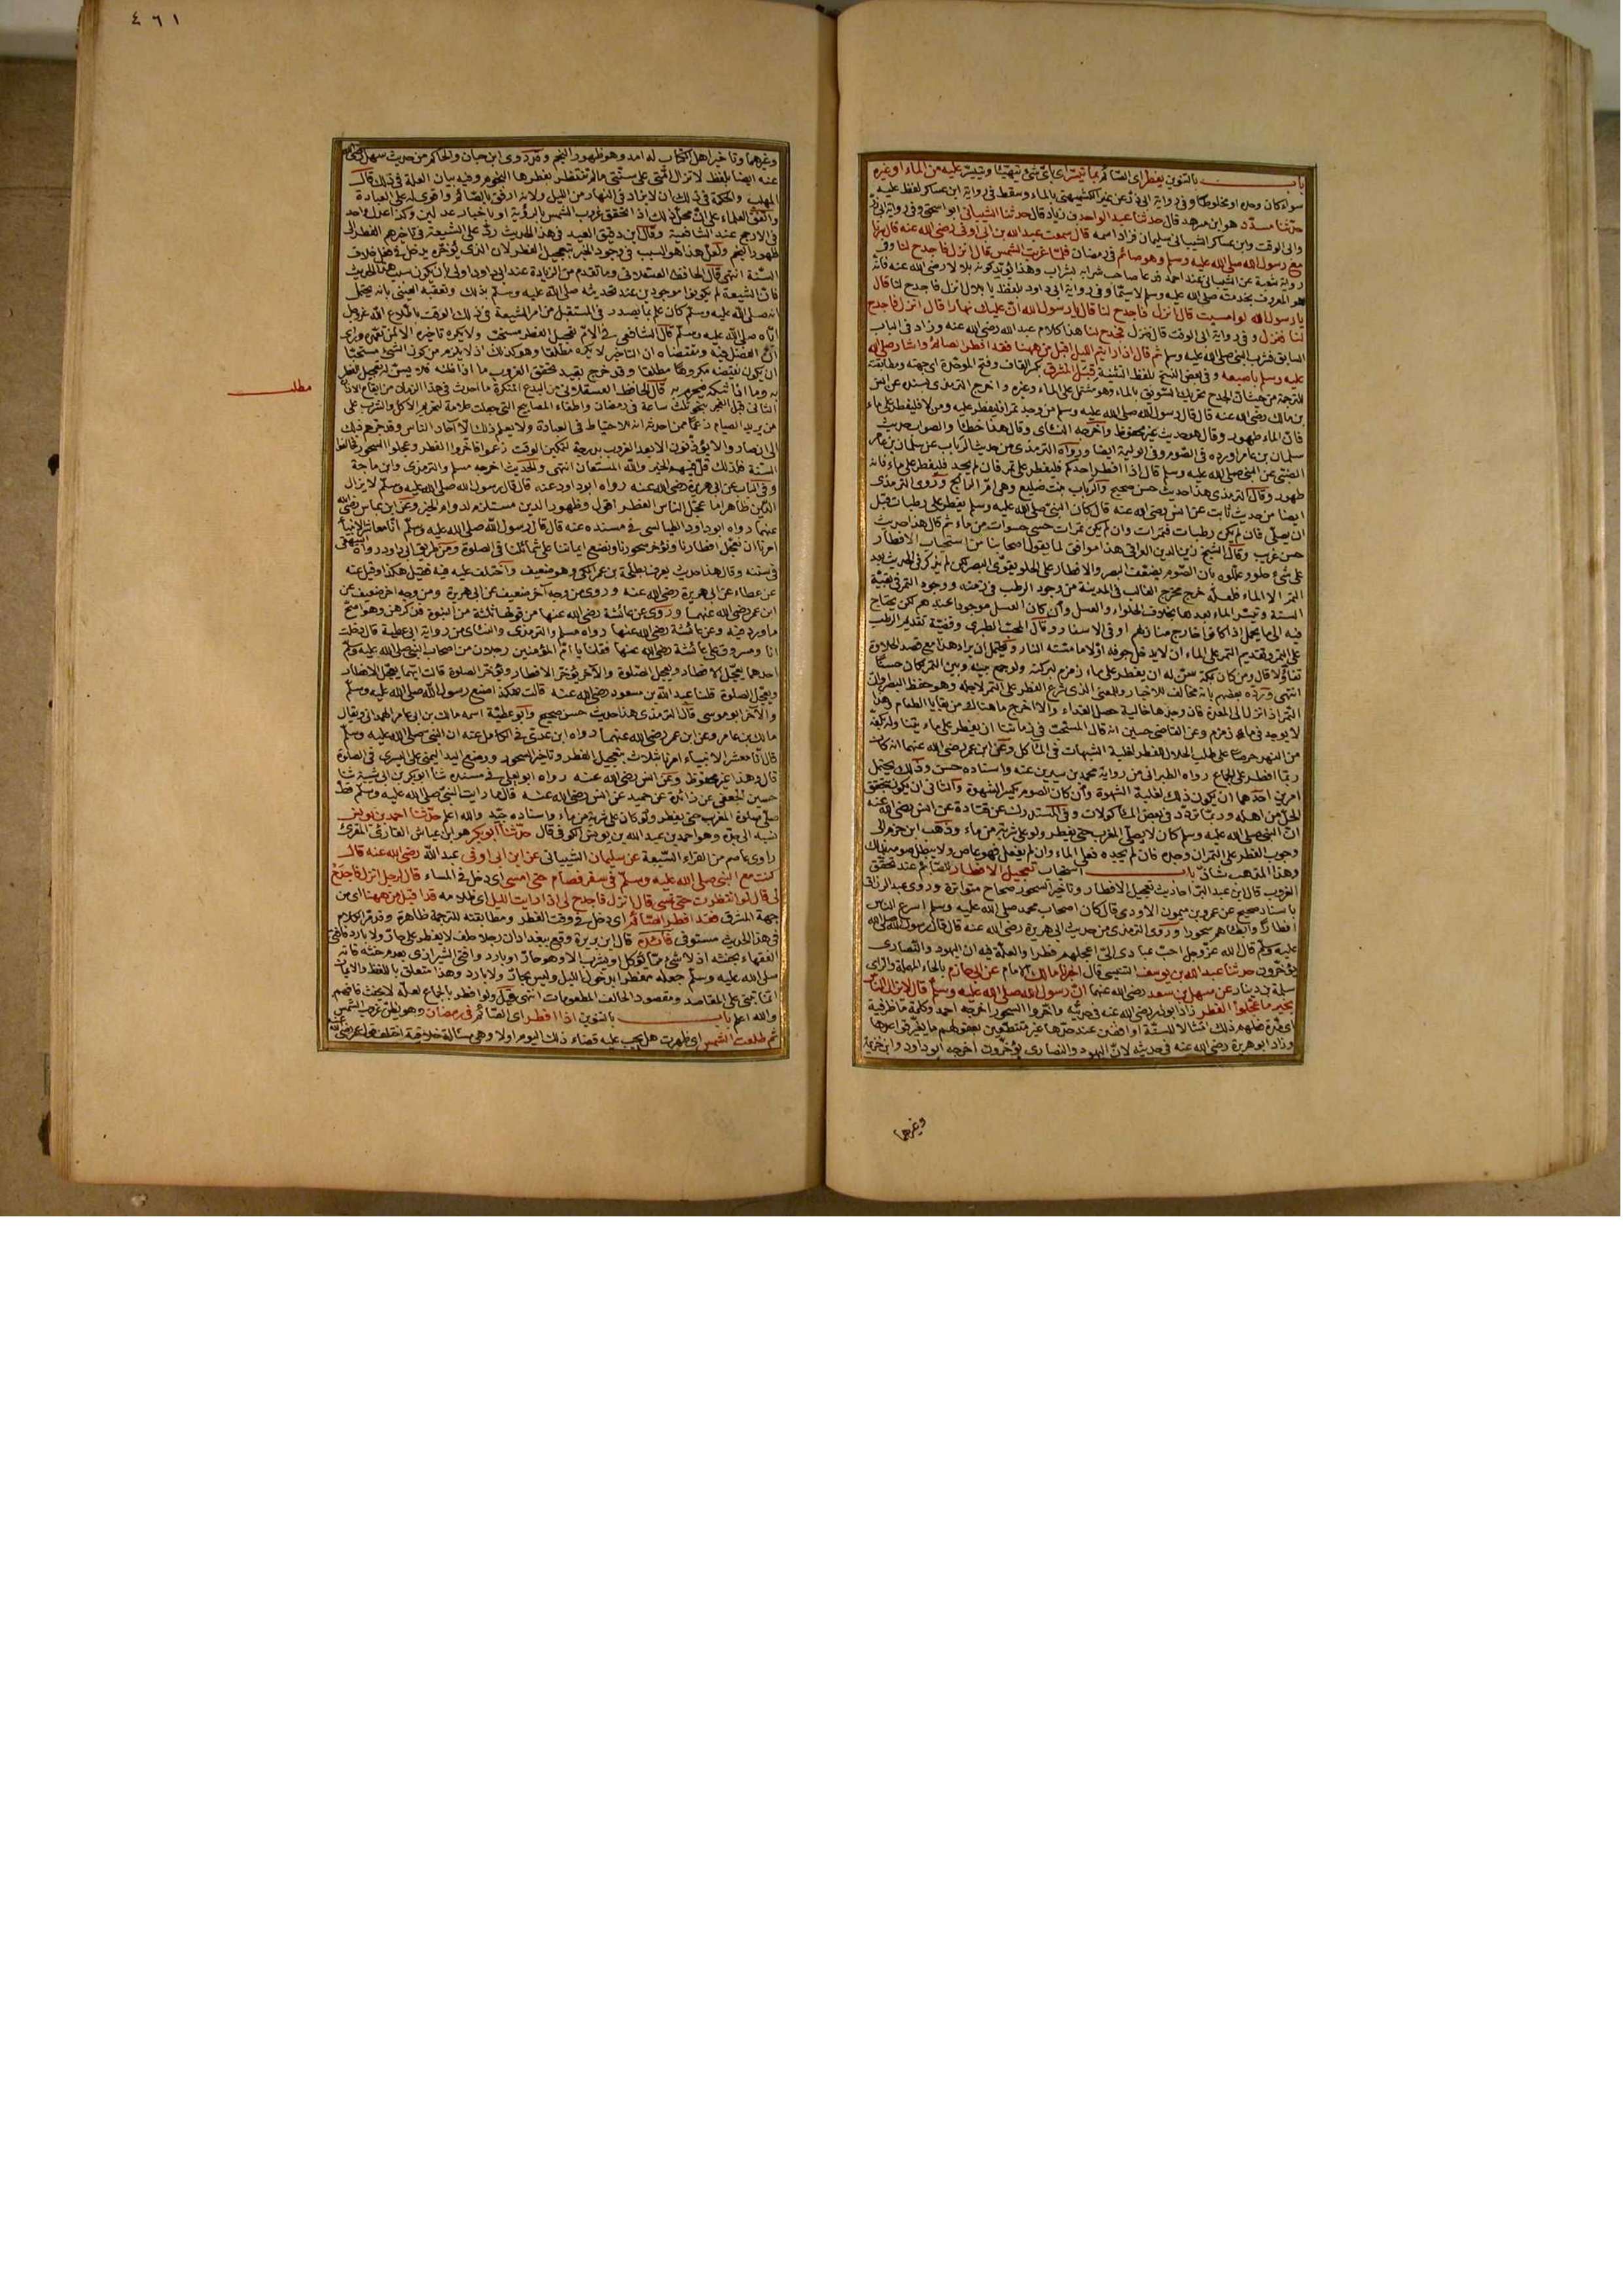 باب بالتنوين يفطر اى الصائم بما تيسر اى باى شئ تهيئا وتيسر عليه من الماء او غيره
سواء كان وحده او مخلوطا وفى رواية ابى ذر عن غير الكشميهنى بالماء وسقط فى رواية ابن عساكر لفظ عليه
حدثنا مسدد هو ابن مسرهد قال حدثنا عبد الواحد بن زياد قال حدثنا الشيبانى ابو اسحق وفى رواية ابى ذر
وابى الوقت وابن عساكر الشيبانى سليمان فزاد اسمه قال سمعت عبد الله بن ابى اوفى رضى الله عنه قال سرنا
مع رسول الله صلى الله عليه وسلم وهو صائم فى رمضان فلما غربت الشمس قال انزل فاجدح لنا وفى
رواية شعبة عن الشيبانى عند احمد فدعا صاحب شرابه بشراب وهذا يؤيد كونه بلالا رضى الله عنه فانه
هو المعروف بخدمته صلى الله عليه وسلم لاسيما وفى رواية ابى داود بلفظ يا بلال انزل فاجدح لنا قال
يا رسول الله لو امسيت قال انزل فاجدح لنا قال يا رسول الله ان عليك نهارا قال انزل فاجدح
لنا فنزل وفى رواية ابى الوقت قال فنزل فجدح لنا هذا كلام عبد الله رضى الله عنه وزاد فى الباب
السابق فشرب النبى صلى الله عليه وسلم ثم قال اذا رايتم الليل اقبل من ههنا فقد افطر الصائم واشار صلى الله
عليه وسلم باصبعه وفى بعض النسخ بلفظ التثنية قبل المشرق بكسر القاف وفتح الموحدة اى جهته ومطابقته
للترجمة من حيث ان الجدح تحريك السويق بالماء وهو مشتمل على الماء وغيره واخرج الترمذى بسنده عن انس
بن مالك رضى الله عنه قال قال رسول الله صلى الله عليه وسلم من وجد تمرا فليفطر عليه ومن لا فليفطر على ماء
فان الماء طهور وقال هو حديث غير محفوظ واخرجه النسائى وقال هذا خطأ والصواب حديث
سلمان بن عامر اورده فى الصوم وفى الوليمة ايضا ورواه الترمذى من حديث الرباب عن سلمان بن عامر
الضبى عن النبى صلى الله عليه وسلم قال اذا افطر احدكم فليفطر على تمر فان لم يجد فليفطر على ماء فانه
طهور وقال الترمذى هذا حديث حسن صحيح والرباب بنت صليع وهى ام الرائح وروى الترمذى
ايضا من حديث ثابت عن انس رضى الله عنه قال كان النبى صلى الله عليه وسلم يفطر على رطبات قبل
ان يصلى فان لم يكن رطبات فتمرات وان لم يكن تمرات حسى حسوات من ماء ثم قال هذا حديث
حسن غريب وقال الشيخ زين الدين العراقى هذا موافق لما يقول اصحابنا من استحباب الافطار
على شئ حلو وعللوه بان الصوم يضعف البصر والافطار على الحلو يقوى البصر لكن لم يذكر فى الحديث بعد
التمر الا الماء فلعله خرج مخرج الغالب فى المدينة من وجود الرطب فى زمنه ووجود التمر فى بقية
السنة وتيسر الماء بعدهما بخلاف الحلواء والعسل وان كان العسل موجودا عندهم لكن يحتاج
فيه الى ما يحمل اذا كانوا خارج منازلهم او فى الاسفار وقال المحب الطبرى وقضية تقديم الرطب
على التمر وتقديم التمر على الماء ان لا يدخل جوفه اولا ما مسته النار ويحتمل ان يراد هذا مع قصد الحلاوة
تفاؤلا قال ومن كان بمكة سن له ان يفطر على ماء زمزم لبركته ولو جمع بينه وبين التمر كان حسنا
انتهى ورده بعضهم بانه مخالف للاخبار وللمعنى الذى شرع الفطر على التمر لاجله وهو حفظ البصر وان
التمر اذا نزل الى المعدة فان وجدها خالية حصل الغذاء والا اخرج ما هناك من بقايا الطعام وهذا
لا يوجد فى ماء زمزم وعن القاضى حسين انه قال المستحب فى زماننا ان يفطر على ماء يتناوله بكفه
من النهر حرصا على طلب الحلال للفطر لغلبة الشبهات فى المآكل وعن ابن عمر رضى الله عنهما انه كان
ربما افطر على الجماع رواه الطبرانى من رواية محمد بن سيرين عنه واسناده حسن وذلك يحتمل
امرين احدهما ان يكون ذلك لغلبة الشهوة وان كان الصوم يكسر الشهوة والثانى ان يكون لتحقق
الحل من اهله وربما تردد فى بعض الماكولات وفى المستدرك عن قتادة عن انس رضى الله عنه
ان النبى صلى الله عليه وسلم كان لا يصلى المغرب حتى يفطر ولو على شربة من ماء وذهب ابن حزم الى
وجوب الفطر على التمر ان وجده فان لم يجده فعلى الماء وان لم يفعل فهو عاص ولا يبطل صومه بذلك
وهذا المذهب شاذ باب استحباب تعجيل الافطار للصائم عند تحقق
الغروب قال ابن عبد البر احاديث تعجيل الافطار وتاخير السحور صحاح متواترة وروى عبد الرزاق
باسناد صحيح عن عمرو بن ميمون الاودى قال كان اصحاب محمد صلى الله عليه وسلم اسرع الناس
افطارا وابطأهم سحورا وروى الترمذى من حديث ابى هريرة رضى الله عنه قال قال رسول الله صلى الله
عليه وسلم قال الله عز وجل احب عبادى الى اعجلهم فطرا والعلة فيه ان اليهود والنصارى
يؤخرون حدثنا عبد الله بن يوسف التنيسى قال اخبرنا مالك الامام عن ابى حازم بالحاء المهملة والزاى
سلمة بن دينار عن سهل بن سعد رضى الله عنهما ان رسول الله صلى الله عليه وسلم قال لا يزال الناس
بخير ما عجلوا الفطر زاد ابو ذر رضى الله عنه فى حديثه واخروا السحور اخرجه احمد وكلمة ما ظرفية
اى مدة فعلهم ذلك امتثالا للسنة او اقفين عند حدها غير متنطعين بعقولهم ما يغير قواعدها
وزاد ابو هريرة رضى الله عنه فى حديثه لان اليهود والنصارى يؤخرون اخرجه ابو داود وابن خزيمة
وغيرهما
٤٦١
وغيرهما وتاخير اهل الكتاب له امد وهو ظهور النجم وقد روى ابن حبان والحاكم من حديث سهل رضى الله
عنه ايضا بلفظ لا تزال امتى على سنتى ما لم تنتظر بفطرها النجوم وفيه بيان العلة فى ذلك قال
المهلب والحكمة فى ذلك ان لا يزاد فى النهار من الليل ولانه ارفق بالصائم واقوى له على العبادة
واتفق العلماء على ان محل ذلك اذا تحقق غروب الشمس بالرؤية او باخبار عدلين وكذا عدل واحد
فى الارجح عند الشافعية وقال ابن دقيق العيد فى هذا الحديث رد على الشيعة فى تاخيرهم الفطر الى
ظهور النجم ولعل هذا هو السبب فى وجود الخير بتعجيل الفطر لان الذى يؤخره يدخل فى فعل خلاف
السنة انتهى قال الحافظ العسقلانى وما تقدم من الزيادة عند ابى داود اولى بان يكون سبب هذا الحديث
فان الشيعة لم يكونوا موجودين عند تحديثه صلى الله عليه وسلم بذلك وتعقبه العينى بانه يحتمل
انه صلى الله عليه وسلم كان علم بما يصدر فى المستقبل من امر الشيعة فى ذلك الوقت باطلاع الله عز وجل
اياه صلى الله عليه وسلم قال الشافعى فى الام تعجيل الفطر مستحب ولا يكره تاخيره الا لمن تعمده وراى
ان الفضل فيه ومقتضاه ان التاخير لا يكره مطلقا وهو كذلك اذ لا يلزم من كون الشئ مستحبا
ان يكون نقيضه مكروها مطلقا وقد خرج بقيد تحقق الغروب ما اذا ظنه فلا يسن له تعجيل الفطر
به وما اذا شكه فيحرم به قال الحافظ العسقلانى من البدع المنكرة ما احدث فى هذا الزمان من ايقاع الاذان
الثانى قبل الفجر بنحو ثلث ساعة فى رمضان واطفاء المصابيح التى جعلت علامة لتحريم الاكل والشرب على
من يريد الصيام زعما ممن احدثه انه للاحتياط فى العبادة ولا يعلم ذلك الا آحاد الناس وقد جرهم ذلك
الى ان صاروا لا يؤذنون الا بعد الغروب بدرجة لتمكين الوقت زعموا فاخروا الفطر وعجلوا السحور فخالفوا
السنة فلذلك قل فيهم الخير والله المستعان انتهى والحديث اخرجه مسلم والترمذى وابن ماجة
وفى الباب عن ابى هريرة رضى الله عنه رواه ابو داود عنه قال قال رسول الله صلى الله عليه وسلم لا يزال
الدين ظاهرا ما عجل الناس الفطر اقول وظهور الدين مستلزم لدوام الخير وعن ابن عباس رضى الله
عنهما رواه ابو داود الطيالسى فى مسنده عنه قال قال رسول الله صلى الله عليه وسلم انا معاشر الانبياء
امرنا ان نعجل افطارنا ونؤخر سحورنا ونضع ايماننا على شمائلنا فى الصلوة ومن طريق ابى داود رواه البيهقى
فى سننه وقال هذا حديث يعرف بطلحة بن عمر المكى وهو ضعيف واختلف عليه فيه فقيل هكذا وقيل عنه
عن عطاء عن ابى هريرة رضى الله عنه وروى من وجه آخر ضعيف عن ابى هريرة ومن وجه اخر ضعيف عن
ابن عمر رضى الله عنهما وروى عن عائشة رضى الله عنها من قولها ثلثة من النبوة فذكرهن وهو اصح
ما ورد فيه وعن عائشة رضى الله عنها رواه مسلم والترمذى والنسائى من رواية ابى عطية قال دخلت
انا ومسروق على عائشة رضى الله عنها فقلنا يا ام المؤمنين رجلان من اصحاب النبى صلى الله عليه وسلم
احدهما يعجل الافطار ويعجل الصلوة والآخر يؤخر الافطار ويؤخر الصلوة قالت ايهما يعجل الافطار
ويعجل الصلوة قلنا عبد الله بن مسعود رضى الله عنه قالت هكذا صنع رسول الله صلى الله عليه وسلم
والآخر ابو موسى قال الترمذى هذا حديث حسن صحيح وابو عطية اسمه مالك بن ابى عامر الهمدانى ويقال
مالك بن عامر وعن ابن عمر رضى الله عنهما رواه ابن عدى فى الكامل عنه ان النبى صلى الله عليه وسلم
قال انا معشر الانبياء امرنا بثلاث بتعجيل الفطر وتاخير السحور ووضع اليد اليمنى على اليسرى فى الصلوة
قال وهذا غير محفوظ وعن انس رضى الله عنه رواه ابو يعلى فى مسنده ثنا ابو بكر بن ابى شيبة ثنا
حسين الجعفى عن زائدة عن حميد عن انس رضى الله عنه قال ما رايت النبى صلى الله عليه وسلم قط
صلى صلوة المغرب حتى يفطر ولو كان على شربة من ماء واسناده جيد والله اعلم حدثنا احمد بن يونس
نسبه الى جده وهو احمد بن عبد الله بن يونس الكوفى قال حدثنا ابو بكر هو ابن عياش القارئ المقرئ
راوى عاصم من القراء السبعة عن سليمان الشيبانى عن ابن ابى اوفى عبد الله رضى الله عنه قال
كنت مع النبى صلى الله عليه وسلم فى سفر فصام حتى امسى اى دخل فى المساء قال لرجل انزل فاجدح
لى قال لو انتظرت حتى تمسى قال انزل فاجدح لى اذا رايت الليل اى ظلامه قد اقبل من ههنا اى من
جهة المشرق فقد افطر الصائم اى دخل فى وقت الفطر ومطابقته للترجمة ظاهرة وقد مر الكلام
فى هذا الحديث مستوفى فائدة قال ابن بزيزة وقع ببغداد ان رجلا حلف لا يفطر على حار ولا بارد فافتى
الفقهاء بحنثه اذ لا شئ مما يؤكل او يشرب الا وهو حار او بارد وافتى الشيرازى بعدم حنثه فانه
صلى الله عليه وسلم جعله مفطرا بدخول الليل وليس بحار ولا بارد وهذا متعلق باللفظ والايمان
انما تبنى على المقاصد ومقصود الحالف المطعومات انتهى وقيل ولو افطر بالجماع لعله لا يحنث فافهم
والله اعلم باب بالتنوين اذا افطر اى الصائم فى رمضان وهو يظن غروب الشمس
ثم طلعت الشمس اى ظهرت هل يجب عليه قضاء ذلك اليوم اولا وهى مسألة خلافية اختلف
مطلب